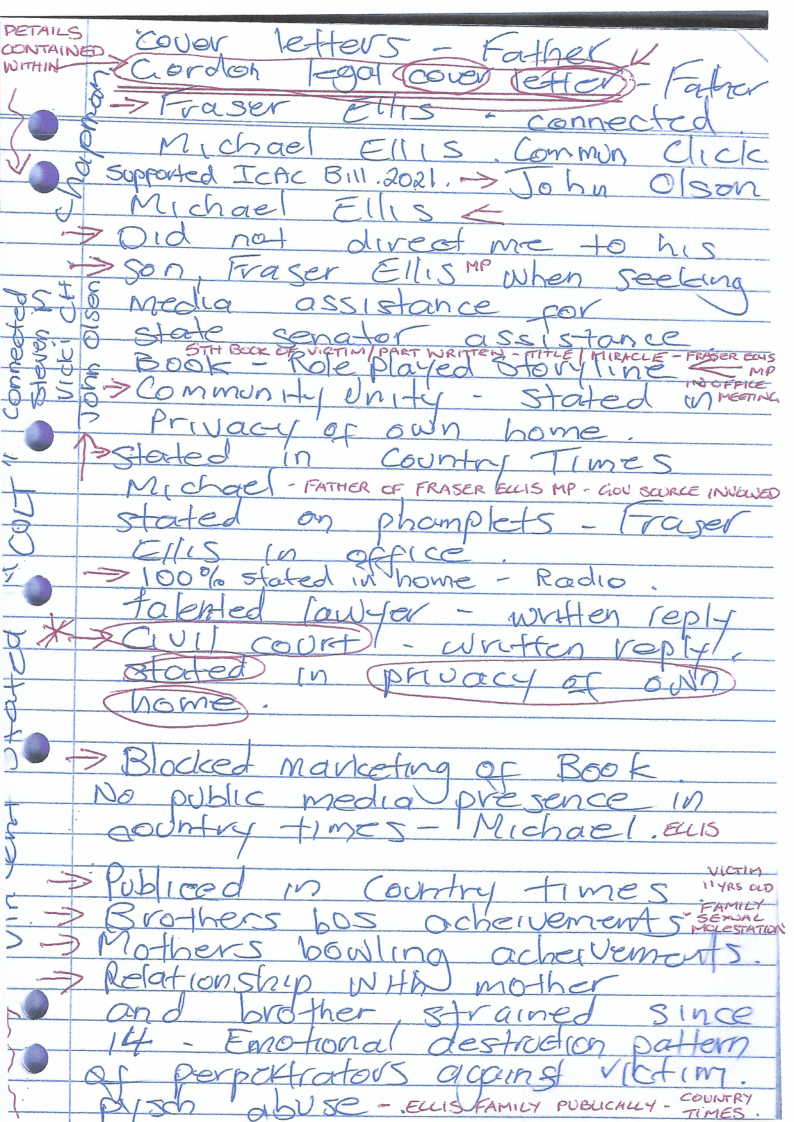 DETAILS
CONTAINED
WITHIN
cover letters - Father
Gordon legal cover letter - Father
Fraser Ellis - connected.
Michael Ellis. Commun Click.
Supported ICAC Bill.2021. → John Olson
Michael Ellis
Did not direct me to his
son, Fraser Ellis MP when seeking
media assistance for
state senator assistance.
5TH BOOK OF VICTIM/PART WRITTEN - TITLE / MIRACLE - FRASER ELLIS
MP
Book - Role played storyline
IN OFFICE
MEETING
Community Unity - stated in
Privacy of own home.
stated in Country Times
Michael - FATHER OF FRASER ELLIS MP - GOV SOURCE INVOLVED
stated on phamplets - Fraser
Ellis in office.
100% stated in home - Radio.
talented lawyer - written reply
Civil court - written reply.
stated in privacy of own
home.
Blocked marketing of Book.
No public media presence in
country times - Michael. ELLIS
Publiced in Country times
VICTIM
11 YRS OLD
FAMILY
SEXUAL
MOLESTATION
Brothers bos acheivements
Mothers bowling acheivements.
Relationship with mother
and brother, strained since
14 - Emotional destruction pattern
of perpetrators against victim.
pysch abuse - .ELLIS FAMILY PUBLICALLY - COUNTRY
TIMES.
Chapman
connected
Steven in
Vicki CH
John Olsen
"CULT"
stated